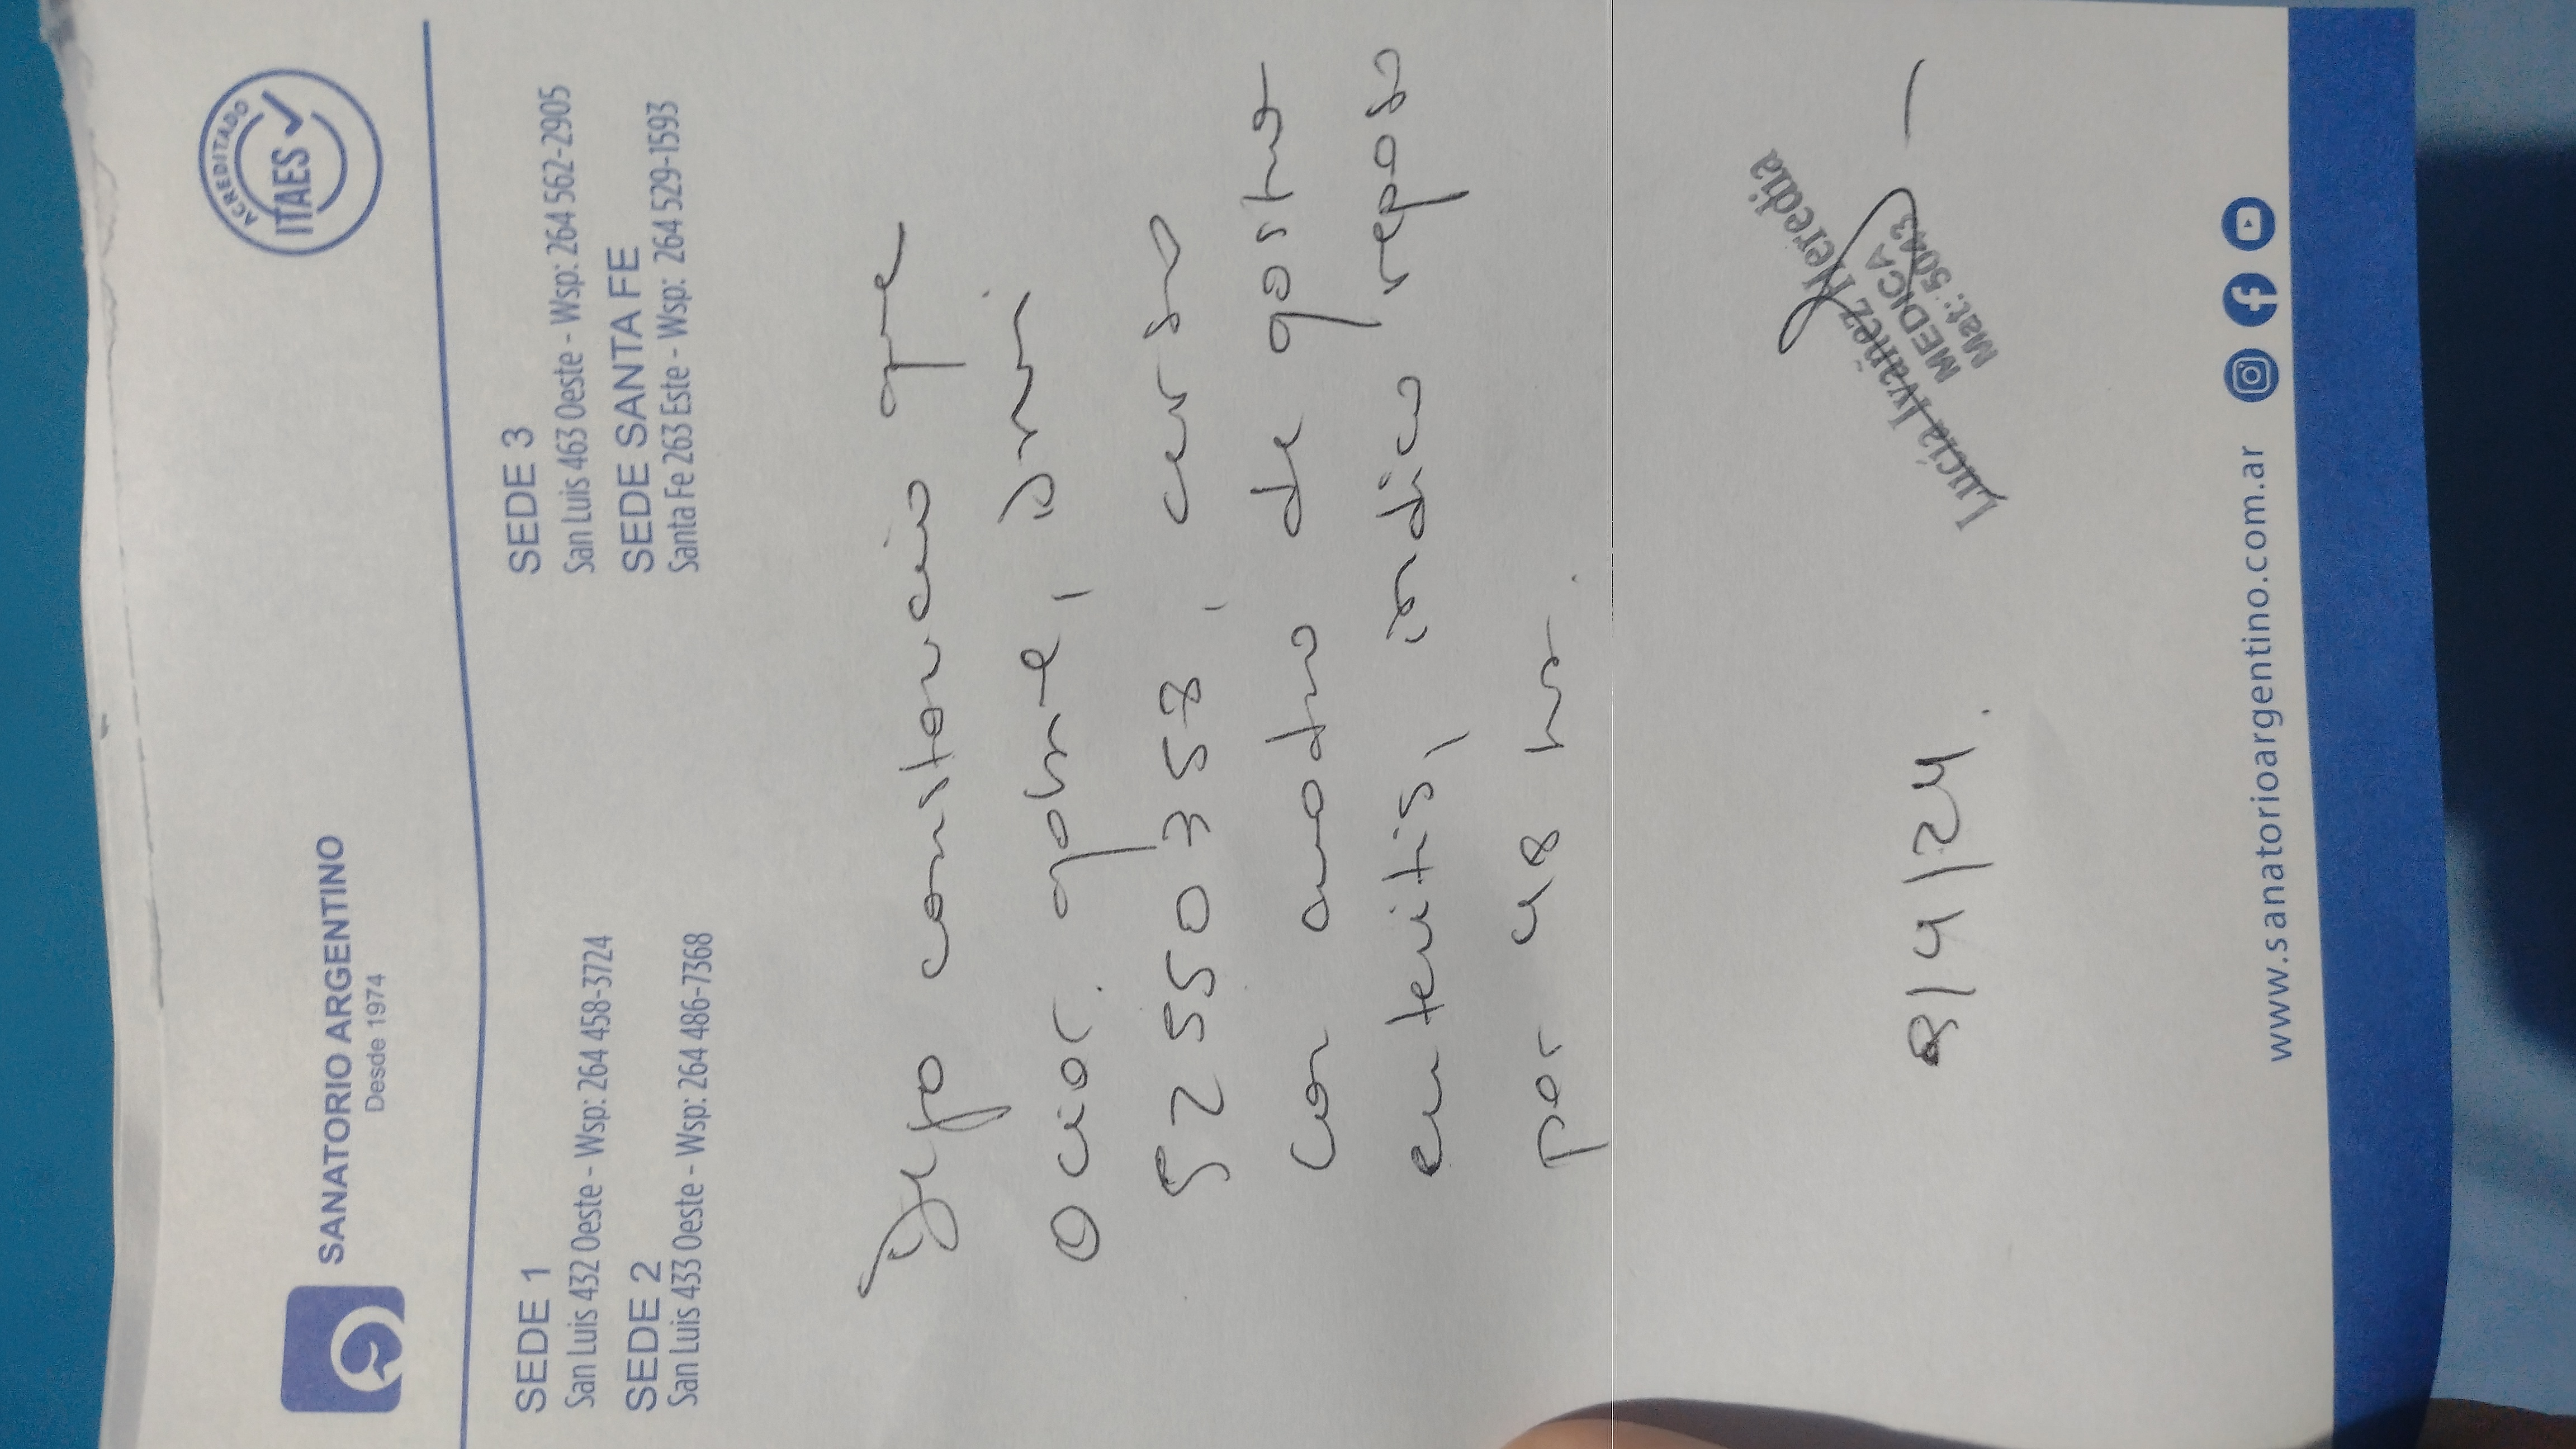 SANATORIO ARGENTINO
Desde 1974
ACREDITADO
ITAES
SEDE 1
San Luis 432 Oeste - Wsp: 264 458-3724
SEDE 2
San Luis 433 Oeste - Wsp: 264 486-7368
SEDE 3
San Luis 463 Oeste - Wsp: 264 562-2905
SEDE SANTA FE
Santa Fe 263 Este - Wsp: 264 529-1593
Dejo constancia que
Dni
52550358, curso
con cuadro de gastro
enteritis, indico reposo
por 48 hs.
8/4/24.
Lucía Ivañez Heredia
MEDICA
Mat: 5043
www.sanatorioargentino.com.ar